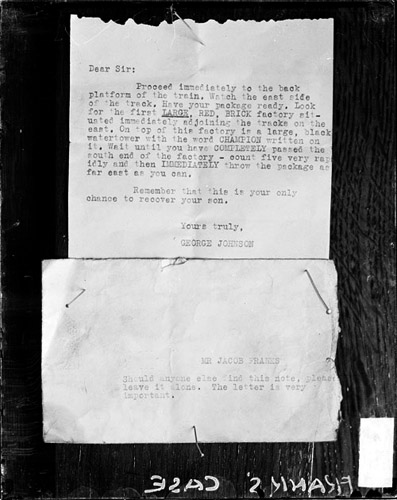 Dear Sir:
Proceed immediately to the back
platform of the train. Watch the east side
of the track. Have your package ready. Look
for the first LARGE, RED, BRICK factory sit-
uated immediately adjoining the tracks on the
east. On top of this factory is a large, black
watertower with the word CHAMPION written on
it. Wait until you have COMPLETELY passed the
south end of the factory - count five very rap
idly and then IMMEDIATELY throw the package as
far east as you can.
Remember that this is your only
chance to recover your son.
Yours truly,
GEORGE JOHNSON
MR JACOB FRANKS
Should anyone else find this note, please
leave it alone. The letter is very
important.
FRANKS' CASE